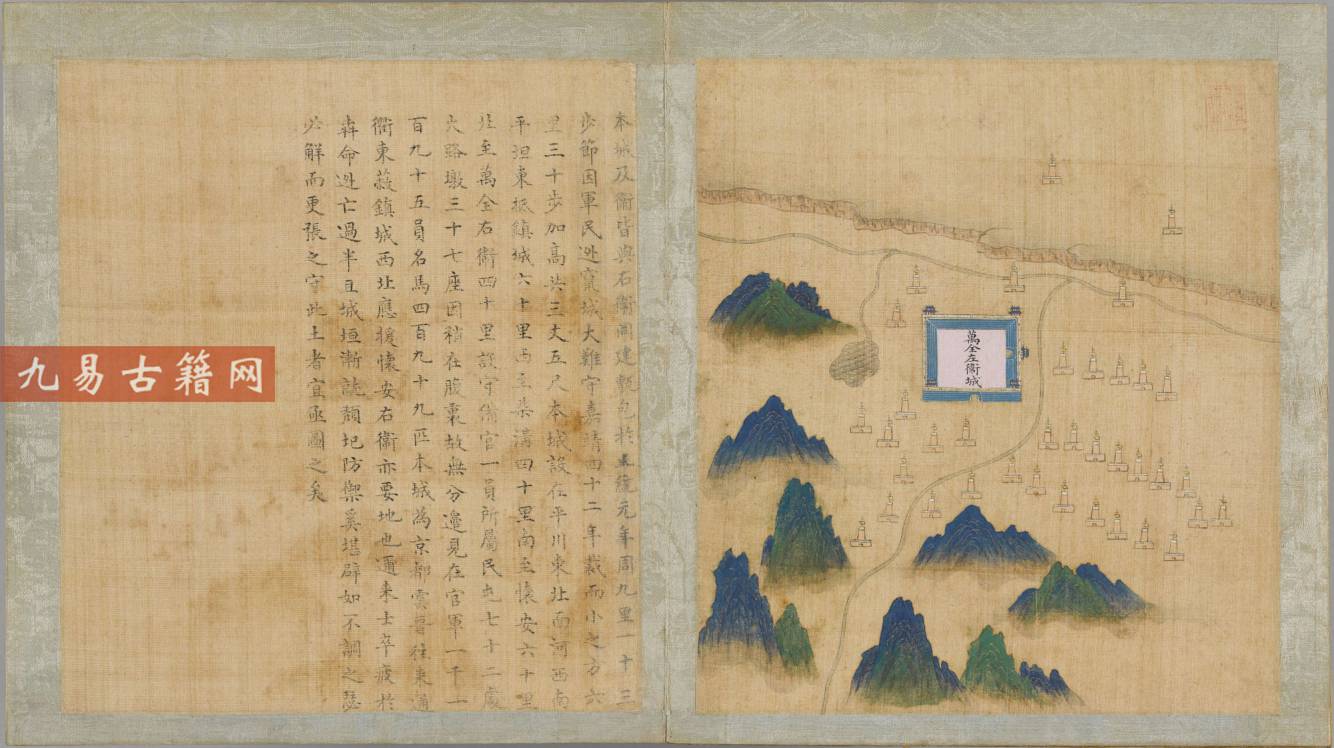 本城及衛皆與右衛同建甎包於正統元年周九里一十三
步節因軍民逃竄城大難守嘉靖四十二年裁而小之方六
里三十步加高共三丈五尺本城設在平川東北面河西南
平坦東抵鎮城六十里西至柴溝四十里南至懷安六十里
北至萬全右衛四十里設守備官一員所屬民屯七十二處
火路墩三十七座因稍在腹裏故無分邊見在官軍一千一
百九十五員名馬四百九十九匹本城為京都雲晉往來通
衢東蔽鎮城西北應援懷安右衛亦要地也邇來士卒疲於
犇命逃亡過半且城垣漸就頹圮防禦奚堪辟如不調之瑟
必解而更張之守此土者宜亟圖之矣
萬全左衛城
九易古籍网